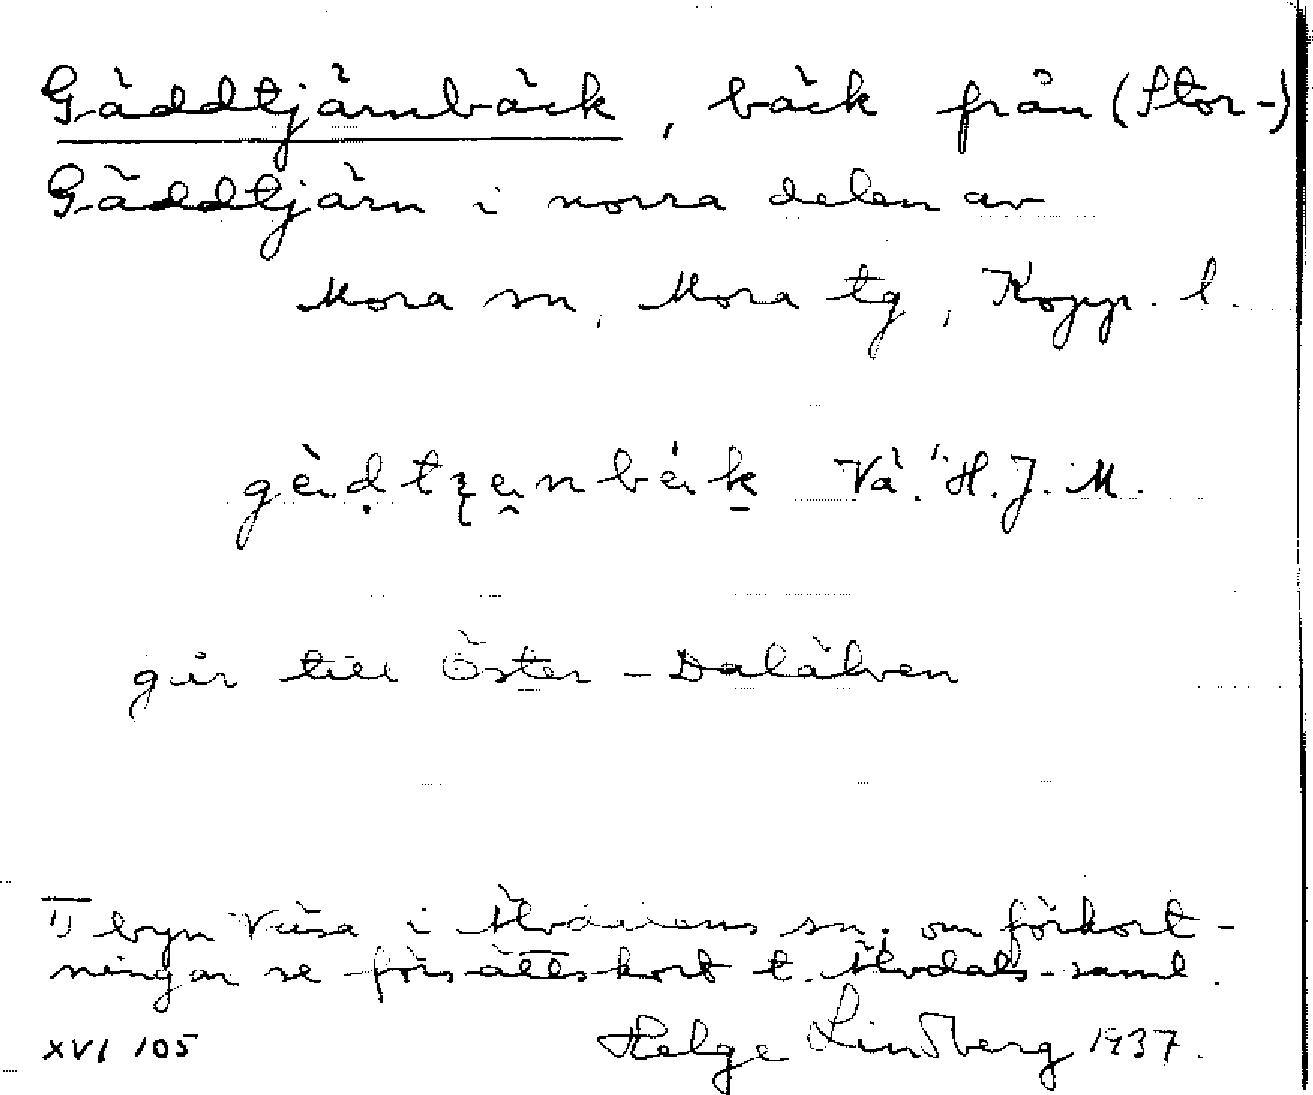 Gäddtjärnbäck, bäck från (Stor-)
Gäddtjärn i norra delen av
Mora sn, Mora tg, Kopp. l.
Vå.¹⁾ H.J.M.
går till Öster-Dalälven
1) byn Våsa i Älvdalens sn; om förkort-
ningar se försättskort t. Älvdals-saml.
XVI 105 Helge Lindberg 1937.